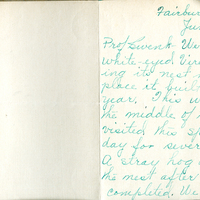 Fairbur
Prof Swenk We
white-eyed Vir
ing its nest
place it buil
year. This w
the middle of
visited this sp
day for sever
A stray hog
the nest after
completed. We